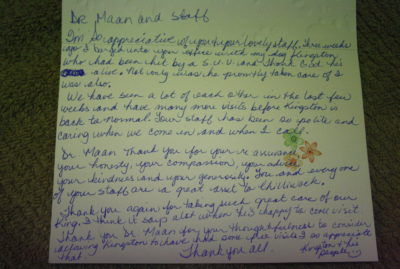 Dr Maan and Staff
I'm so appreciative of you + your lovely staff. Three weeks
ago I barged into your office with my dog Kingston,
who had been hit by a S.U.V. and Thank God he's
alive. Not only was he promptly taken care of I
was also.
We have seen a lot of each other in the last few
weeks and have many more visits before Kingston is
back to Normal. Your staff has been so polite and
caring when we come in and when I call.
Dr Maan Thank you for your re assurance,
your honesty, your compassion, your advice,
your kindness and your generosity. You and everyone
of your staff are a great asset to Chilliwack.
Thank you again for taking such great care of our
King. I think it says alot when he's happy to come visit.
Thank you Dr Maan for your thoughtfulness to consider
allowing Kingston to have had some free visits I so appreciate
that. Thank you all. Kingston + his
people